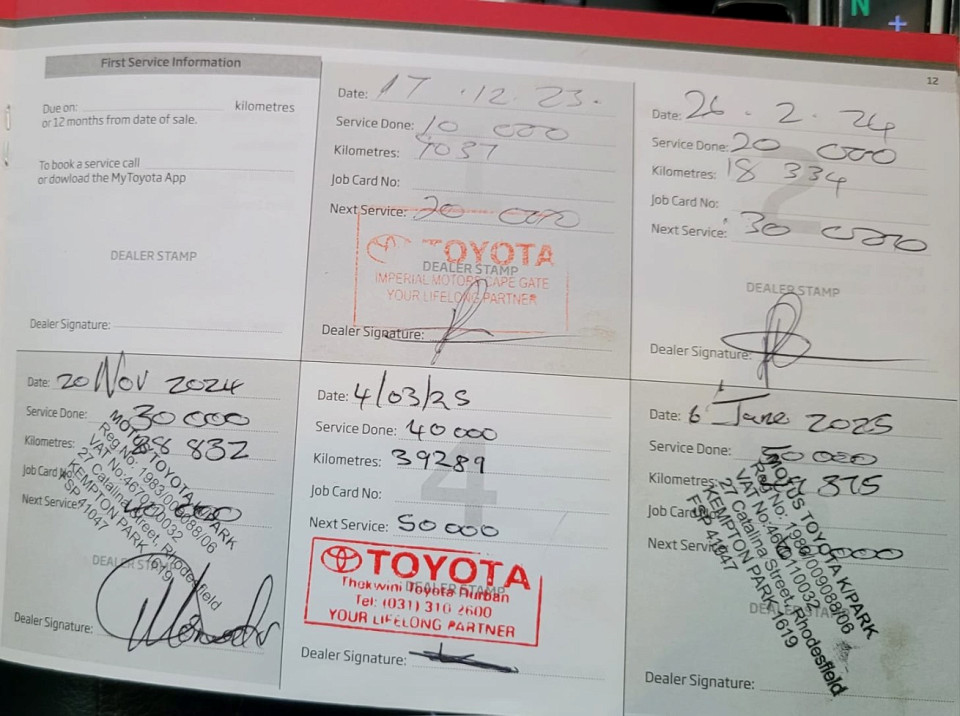 N
+
12
First Service Information
Due on: kilometres
or 12 months from date of sale.
To book a service call
or dowload the MyToyota App
DEALER STAMP
Dealer Signature:
Date: 17 . 12 . 23 .
Service Done: 10 000
Kilometres: 9037
Job Card No:
Next Service: 20 000
1
TOYOTA
DEALER STAMP
IMPERIAL MOTORS CAPE GATE
YOUR LIFELONG PARTNER
Dealer Signature:
Date: 26 . 2 . 24
Service Done: 20 000
Kilometres: 18 334
Job Card No:
Next Service: 30 000
2
DEALER STAMP
Dealer Signature:
Date: 20 Nov 2024
Service Done: 30 000
Kilometres: 832
Job Card No:
Next Service: 40 000
MOTUS TOYOTA K/PARK
Reg No: 1983/009088/06
VAT No:4670110032
27 Catalina Street, Rhodesfield
KEMPTON PARK 1619
FSP 41047
DEALER STAMP
Dealer Signature:
Date: 4/03/25
Service Done: 40 000
Kilometres: 39289
Job Card No:
Next Service: 50 000
4
TOYOTA
DEALER STAMP
Thekwini Toyota Durban
Tel: (031) 310 2600
YOUR LIFELONG PARTNER
Dealer Signature:
Date: 6 June 2025
Service Done: 50 000
Kilometres: 375
Job Card
Next Service: 000
MOTUS TOYOTA K/PARK
Reg No: 1983/009088/06
VAT No:4670110032
27 Catalina Street, Rhodesfield
KEMPTON PARK 1619
FSP 41047
DEALER STAMP
Dealer Signature: